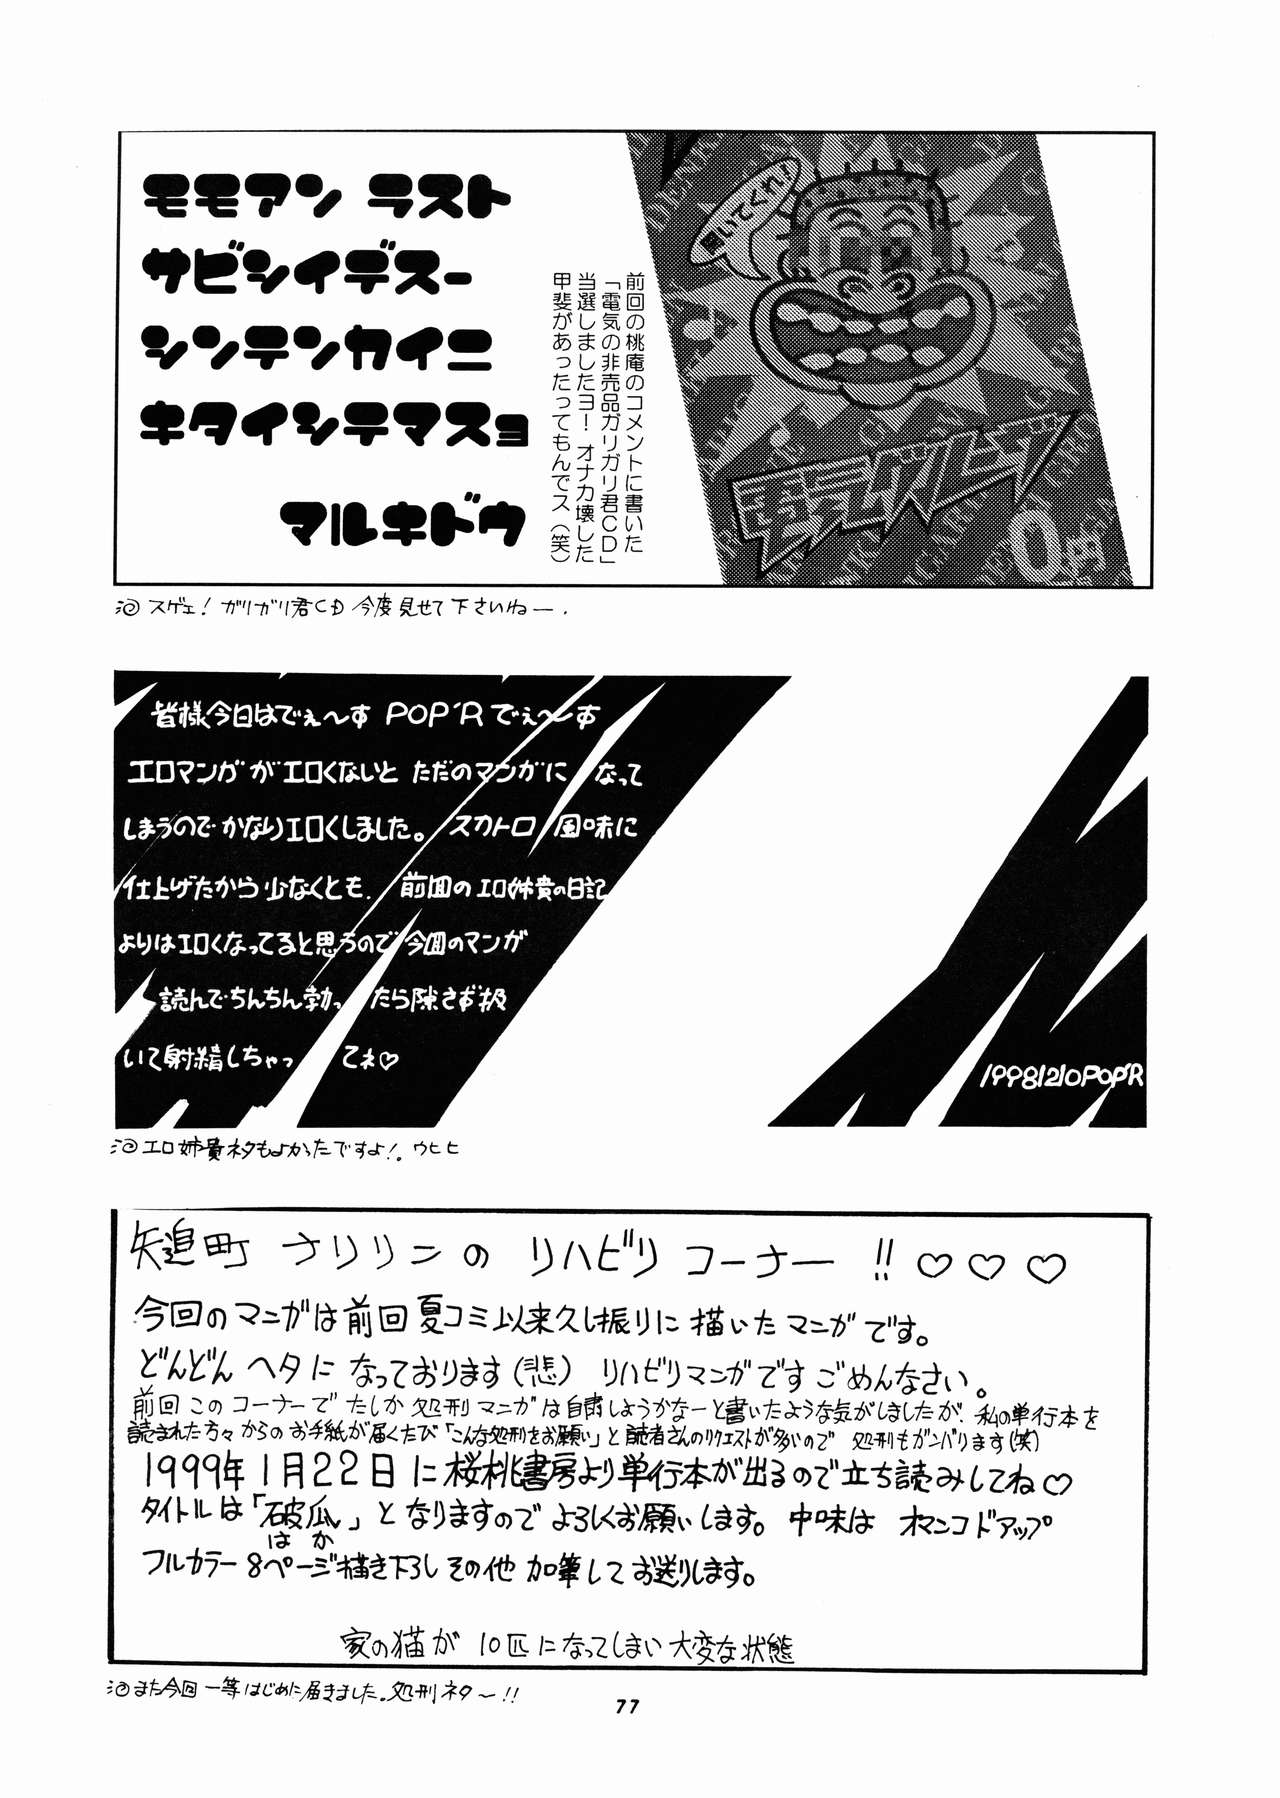 モモアン ラスト
サビシイデスー
シンテンカイニ
キタイシテマスョ
マルキドウ
前回の桃庵のコメントに書いた
「電気の非売品ガリガリ君CD」
当選しましたヨ！ オナカ壊した
甲斐があったってもんでス（笑）
聞いてくれ！
電気グルーブ
0円
スゲェ！ ガリガリ君CD 今度見せて下さいねー.
皆様今日はでぇ〜す POP'Rでぇ〜す
エロマンガがエロくないと ただのマンガに なって
しまうので かなりエロくしました。 スカトロ 風味に
仕上げたから少なくとも. 前回のエロ姉貴の日記
よりはエロくなってると思うので 今回のマンガ
読んでちんちん勃ったら隙さず扱
いて射精しちゃってネ♡
19981210POP'R
エロ姉貴ネタもよかったですよ！. ウヒヒ
矢追町 ナリリンの リハビリ コーナー !! ♡ ♡ ♡
今回のマンガは前回夏コミ以来久し振りに描いたマンガです。
どんどん ヘタに なっております（悲） リハビリマンガです ごめんなさい。
前回このコーナーで たしか 処刑マンガは自粛しようかなーと書いたような気がしましたが、私の単行本を
読まれた方々からのお手紙が届くたび「こんな処刑をお願い」と読者さんのリクエストが多いので 処刑もガンバリます（笑）
1999年1月22日に桜桃書房より単行本が出るので立ち読みしてね♡
タイトルは「破瓜」となりますのでよろしくお願いします。中味は オマンコドアップ
はか
フルカラー8ページ描き下ろしその他 加筆してお送りします。
家の猫が 10匹になってしまい 大変な状態
また今回一等はじめに届きました。処刑ネタ〜!!
77